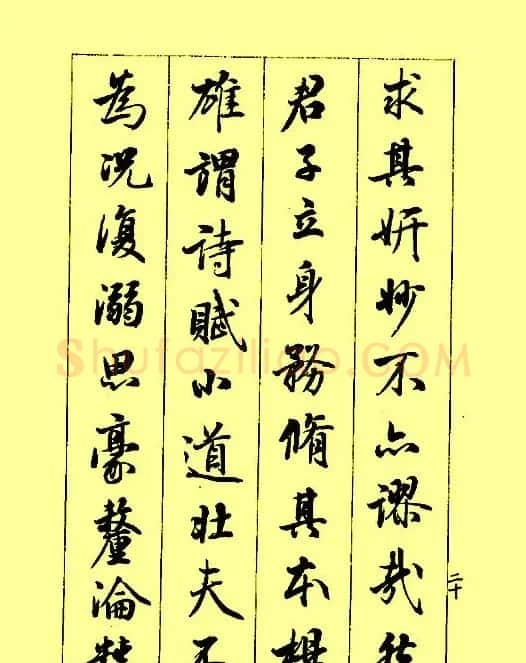 求其妍妙不亦謬哉
君子立身務脩其本
雄謂詩賦小道壯夫不
為況復溺思豪釐淪
二十
Shufaziliao.COM